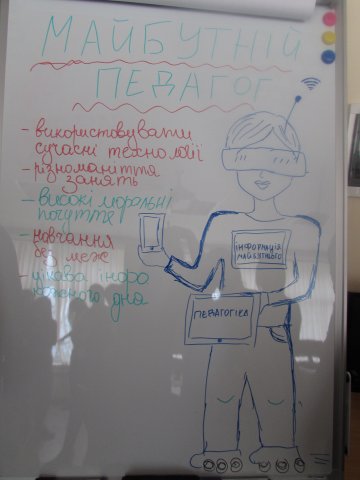 МАЙБУТНІЙ
ПЕДАГОГ
- використовувати
сучасні технології
- різноманіття
занять
- високі моральні
почуття
- навчання
без меж
- цікава інфо
кожного дна
ІНФОРМАЦІЯ
МАЙБУТНЬОГО
ПЕДАГОГІКА